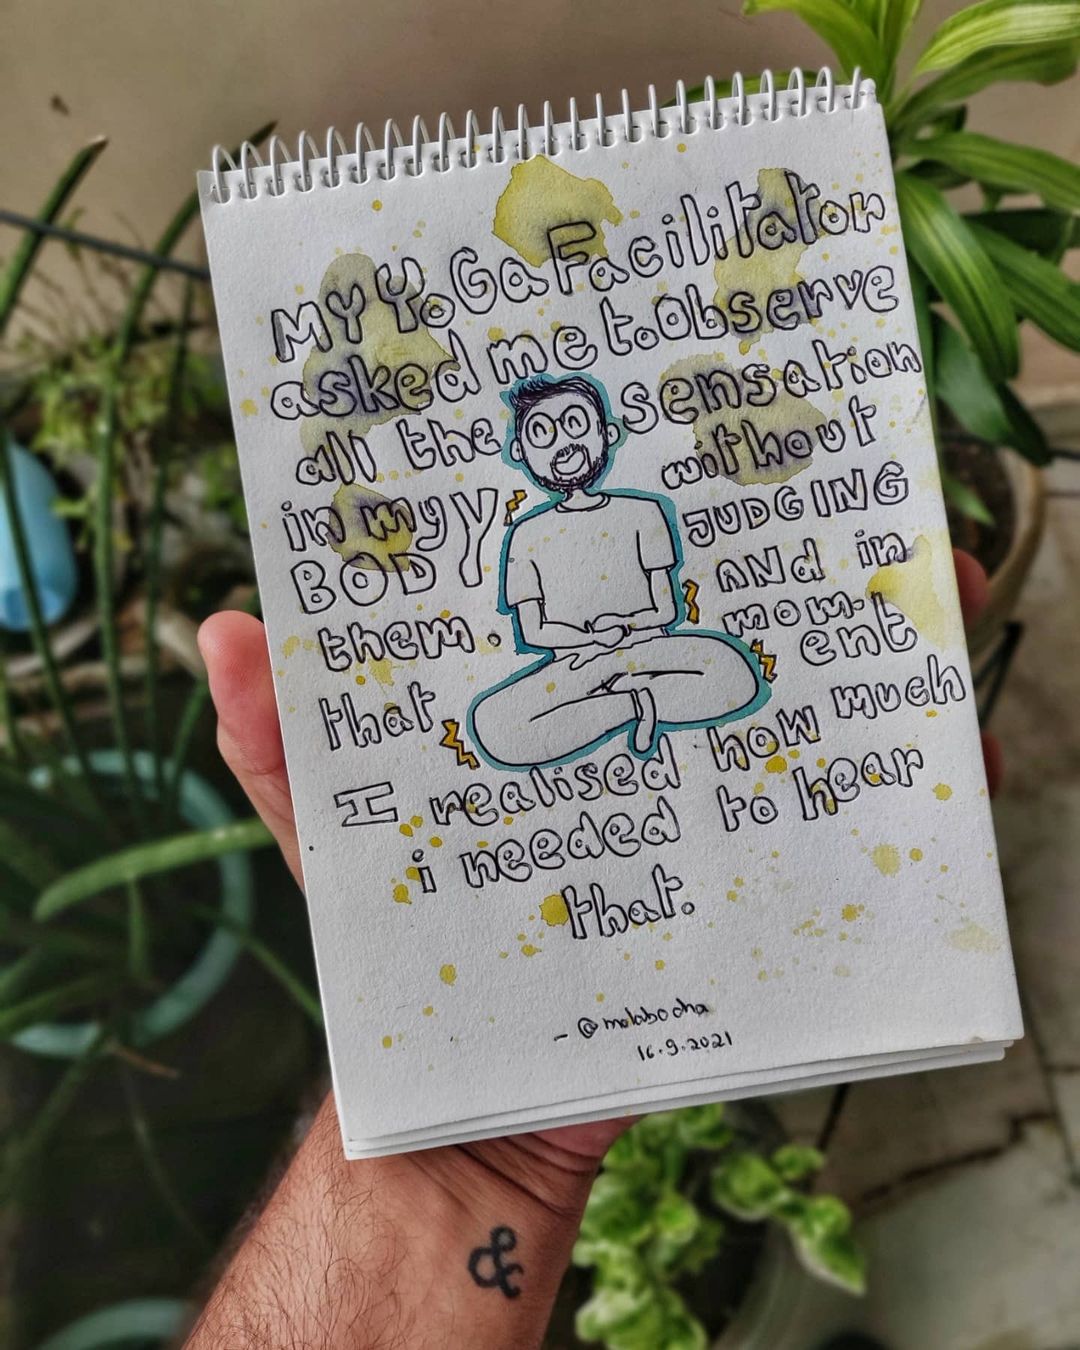 MY YoGa Facilitator
asked me to Observe
all the sensation
in my y without
BOD JUDGING
them. AND in
that mom-
ent
I realised how much
i needed to hear
that.
- @malabocha
16.9.2021